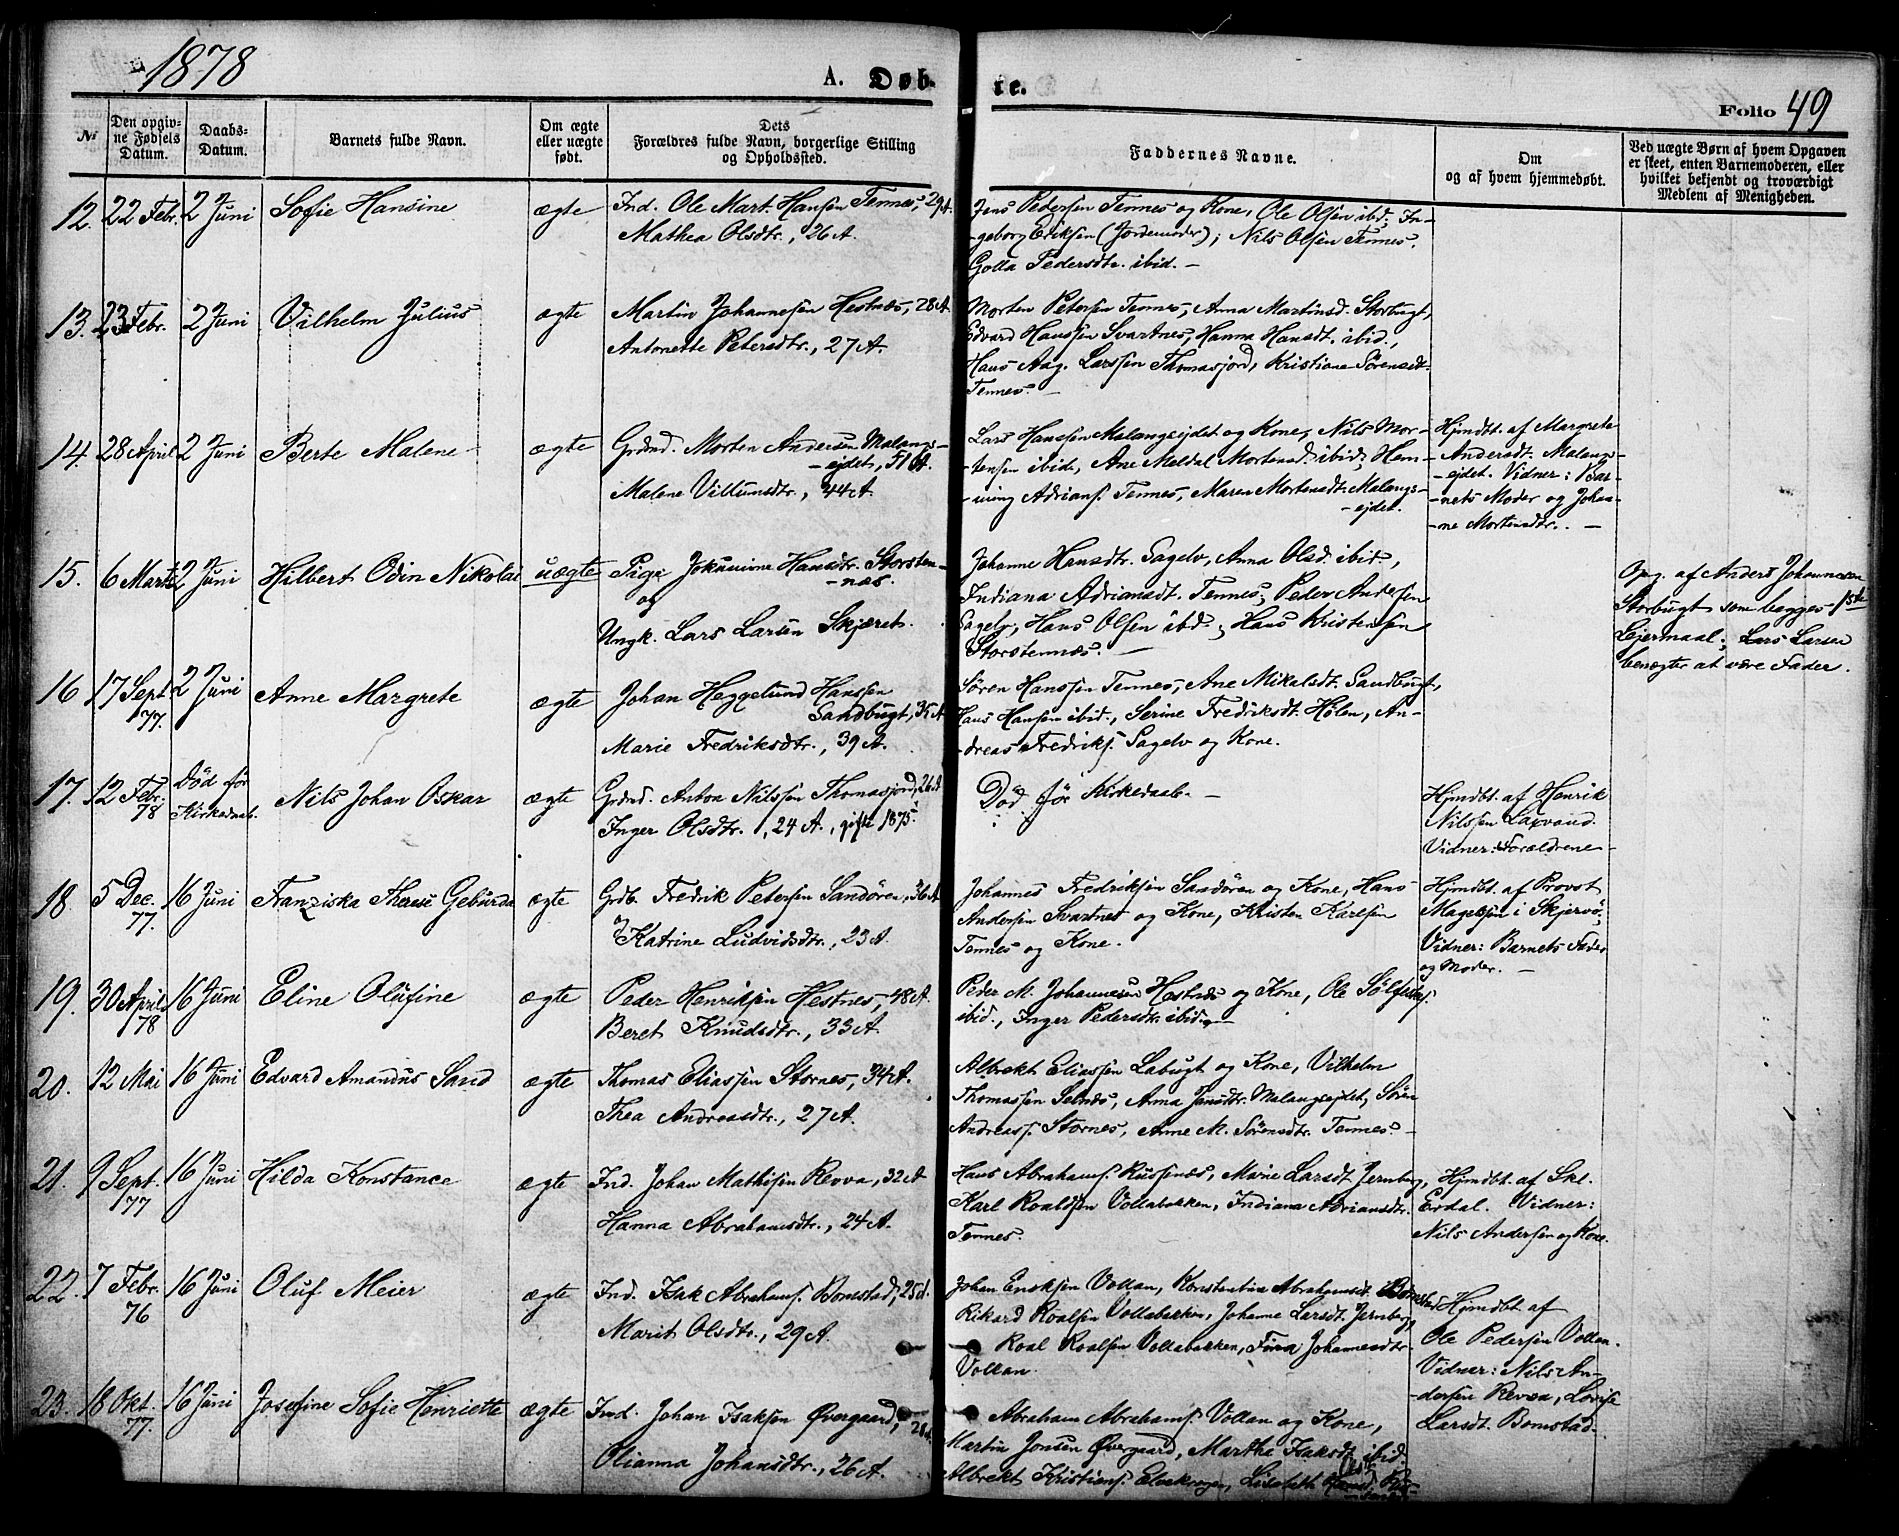 1878
A. Døb-
te.
Folio 49
№
Den opgiv-
ne Fødsels
Datum.
Daabs-
Datum.
Barnets fulde Navn.
Om ægte
eller uægte
født.
Dets
Forældres fulde Navn, borgerlige Stilling
og Opholdssted.
Faddernes Navne.
Om
og af hvem hjemmedøbt.
Ved uægte Børn af hvem Opgaven
er skeet, enten Barnemoderen, eller
hvilket bekjendt og troværdigt
Medlem af Menigheden.
12. 22 Febr. 2 Juni Sofie Hansine ægte
Ind. Ole Mart. Hansen Tennes, 29 A.
Mathea Olsdtr., 26 A.
Jens Pedersen Tennes og Kone, Ole Olsen ibid, In-
-geborg Eriksen (Jordemoder); Nils Olsen Tennes,
Golla Pedersdtr. ibid. –
13. 23 Febr. 2 Juni Vilhelm Julius ægte
Martin Johannesen Hestnæs, 28 A.
Antonette Petersdtr., 27 A.
Morten Petersen Tennes, Anna Martinsd. Storbugt,
Edvard Hanssen Svartnes, Hanna Hansdt. ibid.,
Hans Aag. Larssen Thomasjord, Kristiane Sörensdt.
Tennes. –
14. 28 April 2 Juni Berte Malene ægte
Grdnd. Morten Andersen Malangs-
-ejdet, 51 A.
Malene Villumsdtr., 44 A.
Lars Hanssen Malangsejdet og Kone, Nils Mor-
-tensen ibid, Ane Meldal Mortensd. ibid; Hem-
-ming Adrians. Tennes, Maren Mortensdt. Malangs-
-ejdet.
Hjmdbt. af Margrete
Andersdt. Malangs-
-ejdet. Vidner: Bar-
-nets Moder og Johan-
-ne Mortensdtr. –
15. 6 Marts 2 Juni Hilbert Odin Nikolai uægte
Pige Hansdtr. Storsten-
-næs.
og
Ungk. Lars Larsen
Johanne Hansdtr. Sagelv, Anna Olsd. ibid.,
Indiana Adriansdt. Tennes, Peder Andersen
Sagelv, Hans Olsen ibd., Hans Kristensen
Storstennæs. –
Opg. af Anders Johannesen
Storbugt som begges 1ste
Lejermaal; Lars Larsen
benægter at være Fader.
16 17 Sept. 77. 2 Juni Anne Margrete ægte
Johan Heggelund Hanssen
Sandbugt, 35 A.
Marie Fredriksdtr., 39 A.
Sören Hanssen Tennes, Ane Mikalsdt. Sandbugt,
Hans Hansen ibid., Serine Fredriksdt. Holen, An-
-dreas Fredriks. Sagelv og Kone.
17. 12 Febr. 78 Död för Kirkedaab. Nils Johan Oskar ægte
Grdnd. Anton Nilssen Thomasjord, 26 A
Inger Olsdtr., 24 A., gifte 1875.
Död för Kirkedaab. –
Hjmdbt. af Henrik
Nilssen Laxvand.
Vidner: Forældrene –
18. 5 Dec. 77. 16 Juni Franziska Therese Geburda ægte
Grdb. Fredrik Petersen Sandören, 36 A
Katrine Ludvidsdtr., 23 A.
Johannes Fredriksen Sandören og Kone, Hans
Andersen Svartnes og Kone, Kristen Karlsen
Tennes og Kone.
Hjmdbt. af Provst
Magelsen i Skjervö;
Vidner: Barnets Fader
og Moder. –
19. 30 April 78 16 Juni Eline Olufine ægte
Peder Henriksen Hestnes, 48 A.
Beret Knudsdtr., 33 A.
Peder M. Johannesen Hestnæs og Kone, Ole
ibid., Inger Pedersdtr. ibid. –
20. 12 Mai 16 Juni Edvard Amandus Sand ægte
Thomas Eliassen Stornes, 34 A.
Thea Andreasdtr., 27 A.
Albrekt Eliassen Labugt og Kone, Vilhelm
Thomassen Selnæs, Anna Jansdtr. Malangsejdet, Sören
Andreass. Stornes, Anne M. Sörensdtr. Tennes. –
21. 9 Sept. 77 16 Juni Hilda Konstance ægte
Ind. Johan Mathisen Revva, 32 A
Hanna Abrahamsdtr., 24 A.
Hans Abrahams. Russenæs, Marie Larsdt. Jernberg,
Karl Roaldsen Vollabakken, Indiana Adriansdtr.
Tennes.
Hjmdbt. af Skl.
Erdal. Vidner:
Nils Andersen og Kone.
22. 7 Febr. 76 16 Juni Oluf Meier ægte
Ind. Isak Abrahams. Bomstad, 25 A.
Marit Olsdtr., 29 A.
Johan Vollan, Konstantine Abrahamsdt.
Rikard Roalsen Vollabakken, Johanne Larsdt. Jernberg,
Roal Roalsen Vollabakken, Johannesdtr.
Vollan.
Hjmdbt. af
Ole Pedersen Vollan.
Vidner: Nils An-
-dersen Revva, Lovise
Larsdt. Bomstad.
23. 18 Okt. 77. 16 Juni Josefine Sofie Henriette ægte
Ind. Johan Isaksen Øvergaard, 28 A.
Olianna Johansdtr., 26 A.
Abraham Abrahams. Vollan og Kone,
Martin Jonsen Øvergaard, Martha Isaksdt. ibid.
Albrekt Kristians. Elvekrogen, Lisabeth